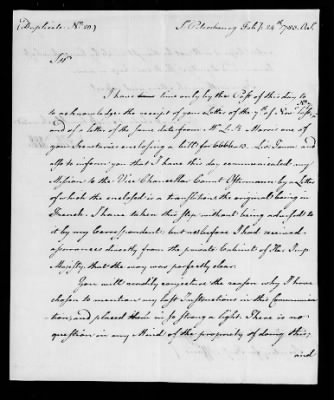 (Duplicate No. 20)
St. Petersbourg Feby. 24th. 1783. O.S.
Sir
I have time only by the Post of this day to
to acknowledge the receipt of your Letter of the 7th. of Novr. last,
and of a letter of the same date from Mr. L. R. Morris one of
your Secretaries enclosing a bill for
also to inform you that I have this day communicated my
Mission to the Vice Chancellor Count Ostermann by a Letter
of which the enclosed is a translation, the original being in
French. I have taken this step without being advised to
it by my Correspondent but not before I had received
assurances directly from the private Cabinet of Her Imp.
Majesty, that the way was perfectly clear.
You will readily conjecture the reason why I have
chosen to mention my last Instructions in the Communica-
tion, and placed them in so strong a light. There is no
question in any Mind of the propriety of doing this,
and